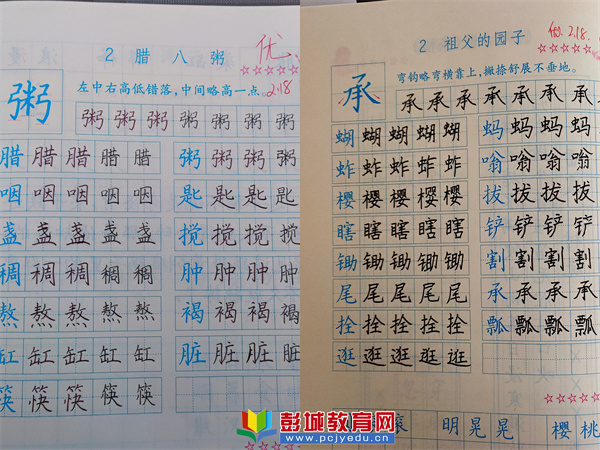 2 腊八粥
优
左中右高低错落,中间略高一点。
2.18
粥 粥 粥 粥 粥 粥 粥 粥
腊 腊 腊 腊 腊 粥 粥 粥 粥
咽 咽 咽 咽 咽 匙 匙 匙 匙
盏 盏 盏 盏 盏 搅 搅 搅 搅
稠 稠 稠 稠 稠 肿 肿 肿 肿
熬 熬 熬 熬 熬 褐 褐 褐 褐
缸 缸 缸 缸 缸 脏 脏 脏 脏
筷 筷 筷 筷 筷
2 祖父的园子
优 2.18.
弯钩略弯横靠上,撇捺舒展不垂地。
承 承 承 承 承 承 承 承
蝴 蝴 蝴 蝴 蝴 蚂 蚂 蚂 蚂
蚱 蚱 蚱 蚱 蚱 嗡 嗡 嗡 嗡
樱 樱 樱 樱 樱 拔 拔 拔 拔
瞎 瞎 瞎 瞎 瞎 铲 铲 铲 铲
锄 锄 锄 锄 锄 割 割 割 割
尾 尾 尾 尾 尾 承 承 承 承
拴 拴 拴 拴 拴 瓢 瓢 瓢 瓢
逛 逛 逛 逛 逛
滚 明晃晃 樱桃
彭城教育网
www.pcjyedu.cn